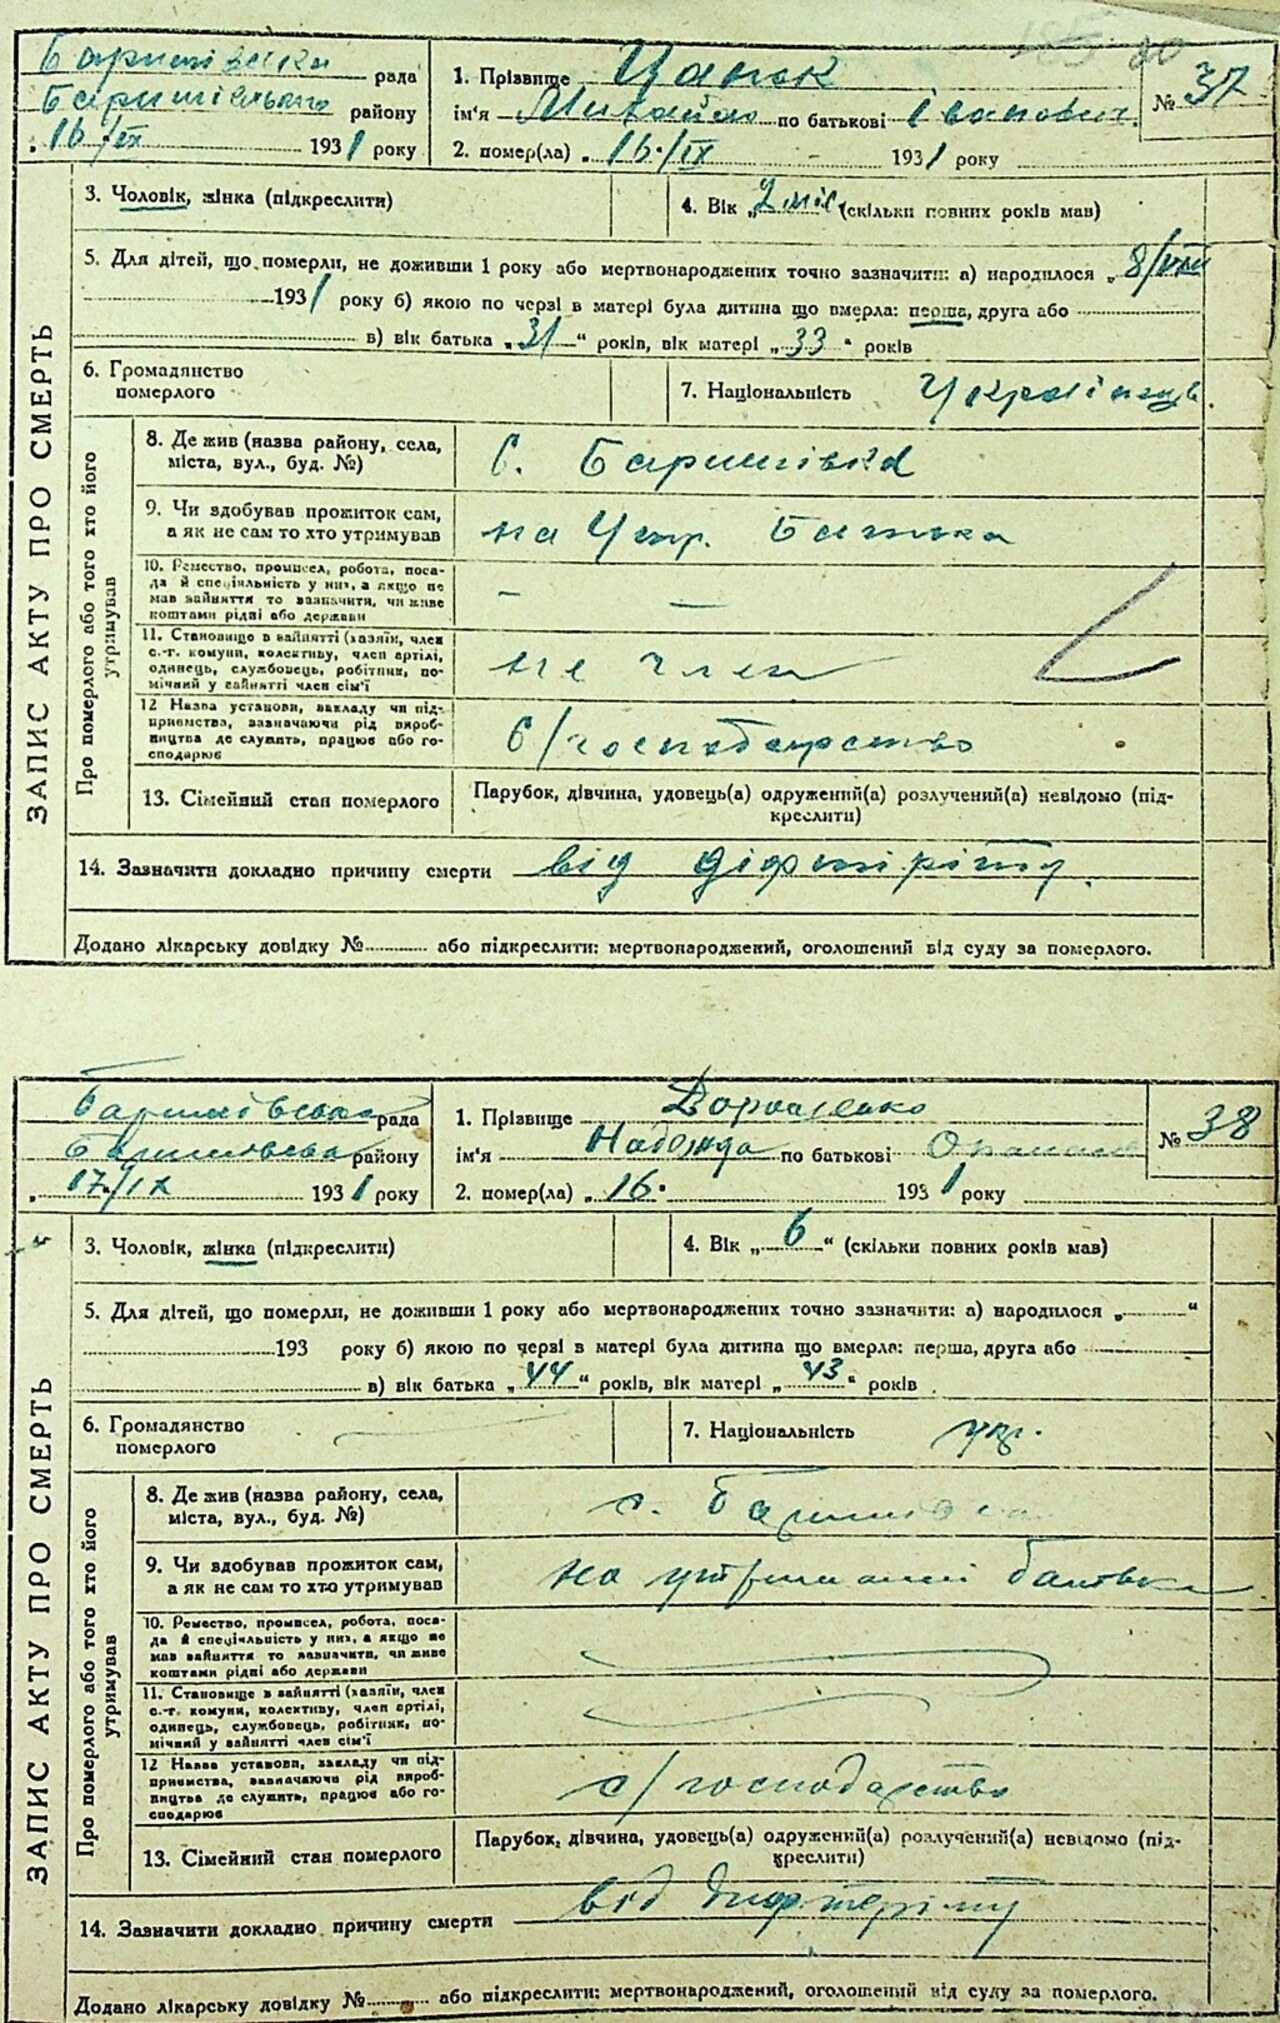 185 20
Баришівська рада
Баришівського району
„ 16/IX 1931 року
1. Прізвище Цапок
ім'я Михайло по батькові Іванович.
2. помер(ла) „ 16./IX 1931 року
№ 37
ЗАПИС АКТУ ПРО СМЕРТЬ
3. Чоловік, жінка (підкреслити)
4. Вік „ 2 міс (скільки повних років мав)
5. Для дітей, що померли, не доживши 1 року або мертвонароджених точно зазначити: а) народилося „ 8/VIII
1931 року б) якою по черзі в матері була дитина що вмерла: перша, друга або
в) вік батька „ 31 “ років, вік матері „ 33 “ років
6. Громадянство
померлого
7. Національність Українець.
Про померлого або того хто його
утримував
8. Де жив (назва району, села,
міста, вул., буд. №)
С. Баришівка
9. Чи здобував прожиток сам,
а як не сам то хто утримував
на Утр. Батька
10. Ремество, промисел, робота, поса-
да й спеціяльність у них, а якщо не
мав зайняття то зазначити, чи живе
коштами рідні або держави
— —
11. Становище в зайнятті (хазяїн, член
с.-г. комуни, колективу, член артілі,
одинець, службовець, робітник, по-
мічний у зайнятті член сім'ї
не член
12 Назва установи, закладу чи під-
приємства, зазначаючи рід вироб-
ництва де служить, працює або го-
сподарює
С/господарство
13. Сімейний стан померлого
Парубок, дівчина, удовець(а) одружений(а) розлучений(а) невідомо (під-
креслити)
14. Зазначити докладно причину смерти від діфтіріту.
Додано лікарську довідку № або підкреслити: мертвонароджений, оголошений від суду за померлого.
Баришівська рада
району
„ 17/IX 1931 року
1. Прізвище Дорошенко
ім'я Надежда по батькові
2. помер(ла) „ 16. 1931 року
№ 38
ЗАПИС АКТУ ПРО СМЕРТЬ
3. Чоловік, жінка (підкреслити)
4. Вік „ 6 “ (скільки повних років мав)
5. Для дітей, що померли, не доживши 1 року або мертвонароджених точно зазначити: а) народилося „ “
193 року б) якою по черзі в матері була дитина що вмерла: перша, друга або
в) вік батька „ 44 “ років, вік матері „ 43 “ років
6. Громадянство
померлого
7. Національність укр.
Про померлого або того хто його
утримував
8. Де жив (назва району, села,
міста, вул., буд. №)
с.
9. Чи здобував прожиток сам,
а як не сам то хто утримував
на утриманні батька
10. Ремество, промисел, робота, поса-
да й спеціяльність у них, а якщо не
мав зайняття то зазначити, чи живе
коштами рідні або держави
11. Становище в зайнятті (хазяїн, член
с.-г. комуни, колективу, член артілі,
одинець, службовець, робітник, по-
мічний у зайнятті член сім'ї
12 Назва установи, закладу чи під-
приємства, зазначаючи рід вироб-
ництва де служить, працює або го-
сподарює
с/господарство
13. Сімейний стан померлого
Парубок, дівчина, удовець(а) одружений(а) розлучений(а) невідомо (під-
креслити)
14. Зазначити докладно причину смерти від дифтеріту
Додано лікарську довідку № або підкреслити: мертвонароджений, оголошений від суду за померлого.